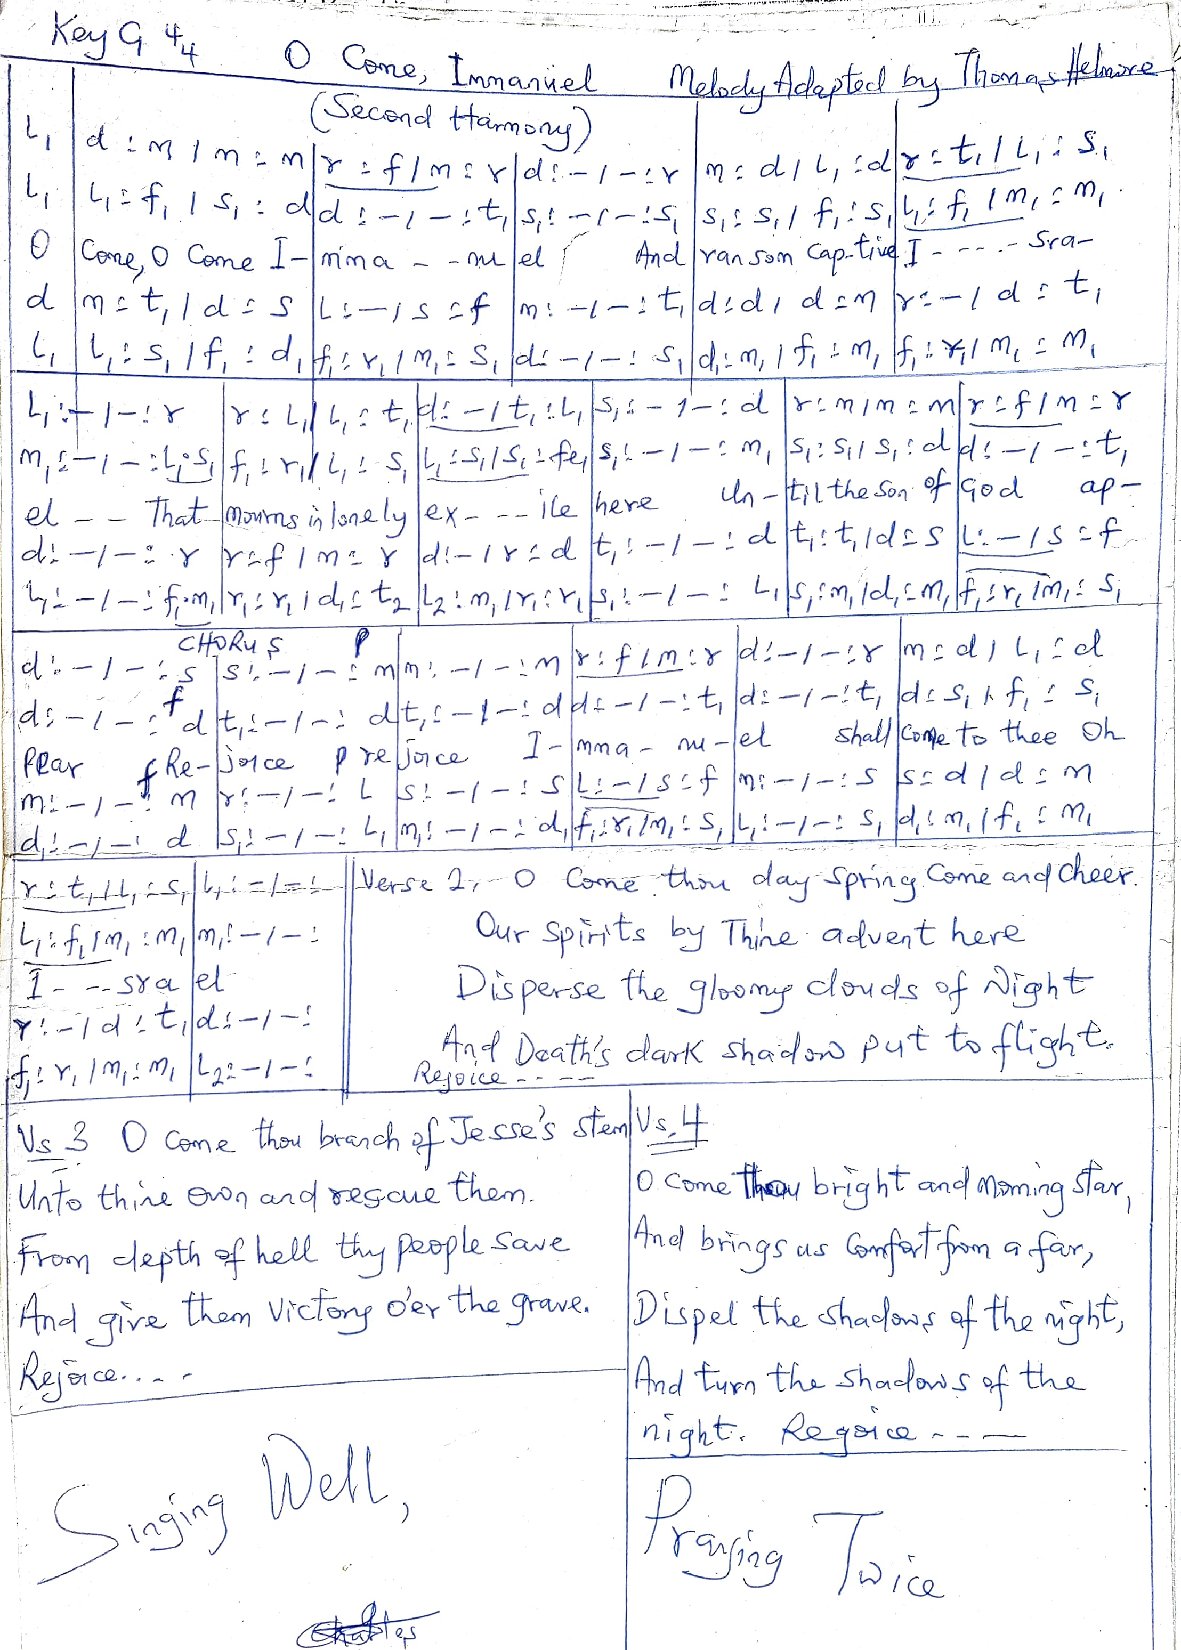 Key G 4/4 O Come, Immanuel Melody Adapted by Thomas Helmore
(Second Harmony)
L₁ | d : m / m : m | r : f / m : r | d : - / - : r | m : d / L₁ : d | r : t₁ / L₁ : s₁
L₁ | L₁ : f₁ / s₁ : d | d : - / - : t₁ | s₁ : - / - : s₁ | s₁ : s₁ / f₁ : s₁ | L₁ : f₁ / m₁ : m₁
O | Come, O Come I- | mma - - nu | el And | ransom Cap-tive | I - - - - sra-
d | m : t₁ / d : s | L : - / s : f | m : - / - : t₁ | d : d / d : m | r : - / d : t₁
L₁ | L₁ : s₁ / f₁ : d₁ | f₁ : r₁ / m₁ : s₁ | d : - / - : s₁ | d₁ : m₁ / f₁ : m₁ | f₁ : r₁ / m₁ : m₁
L₁ : - / - : r | r : L₁ / L₁ : t₁ | d : - / t₁ : L₁ | s₁ : - / - : d | r : m / m : m | r : f / m : r
m₁ : - / - : L₁ . s₁ | f₁ : r₁ / L₁ : s₁ | L₁ : s₁ / s₁ : fe₁ | s₁ : - / - : m₁ | s₁ : s₁ / s₁ : d | d : - / - : t₁
el - - That | mourns in lonely | ex - - - ile | here Un- | til the Son of | God ap-
d : - / - : r | r : f / m : r | d : - / r : d | t₁ : - / - : d | t₁ : t₁ / d : s | L : - / s : f
L₁ : - / - : f₁ . m₁ | r₁ : r₁ / d₁ : t₂ | L₂ : m₁ / r₁ : r₁ | s₁ : - / - : L₁ | s₁ : m₁ / d₁ : m₁ | f₁ : r₁ / m₁ : s₁
CHORUS p
d : - / - : s | s : - / - : m | m : - / - : m | r : f / m : r | d : - / - : r | m : d / L₁ : d
d : - / - : f d | t₁ : - / - : d | t₁ : - / - : d | d : - / - : t₁ | d : - / - : t₁ | d : s₁ / f₁ : s₁
pear f Re- | joice p re | joice I- | mma - nu- | el shall | Come to thee Oh
m : - / - : m | r : - / - : L | s : - / - : s | L : - / s : f | m : - / - : s | s : d / d : m
d₁ : - / - : d | s₁ : - / - : L₁ | m₁ : - / - : d₁ | f₁ : r₁ / m₁ : s₁ | L₁ : - / - : s₁ | d₁ : m₁ / f₁ : m₁
r : t₁ / L₁ : s₁ | L₁ : - / - : || Verse 2, O Come thou day Spring Come and Cheer.
L₁ : f₁ / m₁ : m₁ | m₁ : - / - : Our Spirits by Thine advent here
I - - - sra | el Disperse the gloomy clouds of Night
r : - / d : t₁ | d : - / - : And Death's dark shadow put to flight.
f₁ : r₁ / m₁ : m₁ | L₂ : - / - : Rejoice - - - - -
Vs 3 O Come thou branch of Jesse's stem
Unto thine own and rescue them.
From depth of hell thy people save
And give them victory o'er the grave.
Rejoice....
Vs. 4
O come Thou bright and Morning Star,
And brings us Comfort from a far,
Dispel the shadows of the night,
And turn the shadows of the
night. Rejoice - - -
Singing Well,
Praying Twice